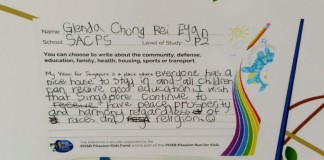 Name Glenda Chong Rei Eyan
School SACPS Level of Study: P2
You can choose to write about the community, defense,
education, family, health, housing, sports or transport.
My Vision for Singapore is a place where everyone has a
nice house to stay in and all children
can receive good education. I wish
that Singapore continue to
have peace, prosperity
and harmony regardless of
races and religion.